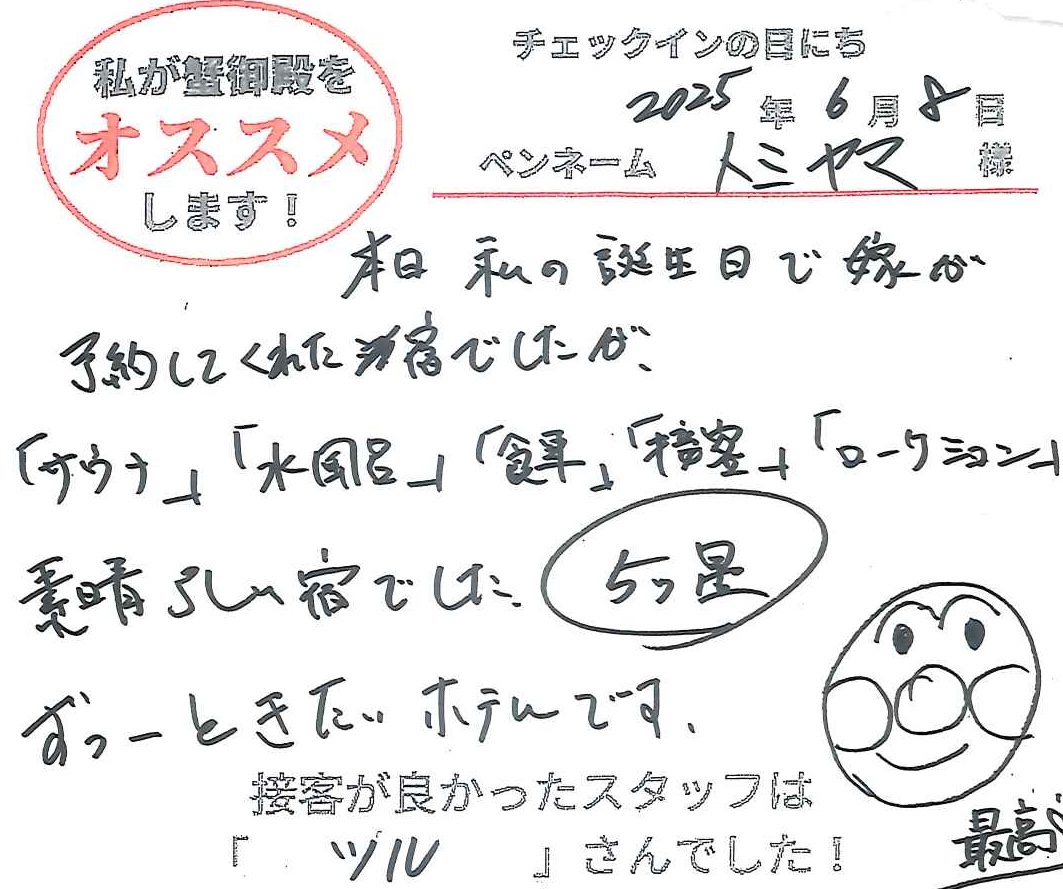 私が蟹御殿を
オススメ
します！
チェックインの日にち
2025年6月8日
ペンネーム トミヤマ 様
本日 私の誕生日で嫁が
予約してくれた宿でしたが、
「サウナ」「水風呂」「食事」「接客」「ロケーション」
素晴らしい宿でした。 5ッ星
ずっーときたいホテルです。
接客が良かったスタッフは
「 ツル 」さんでした！
最高